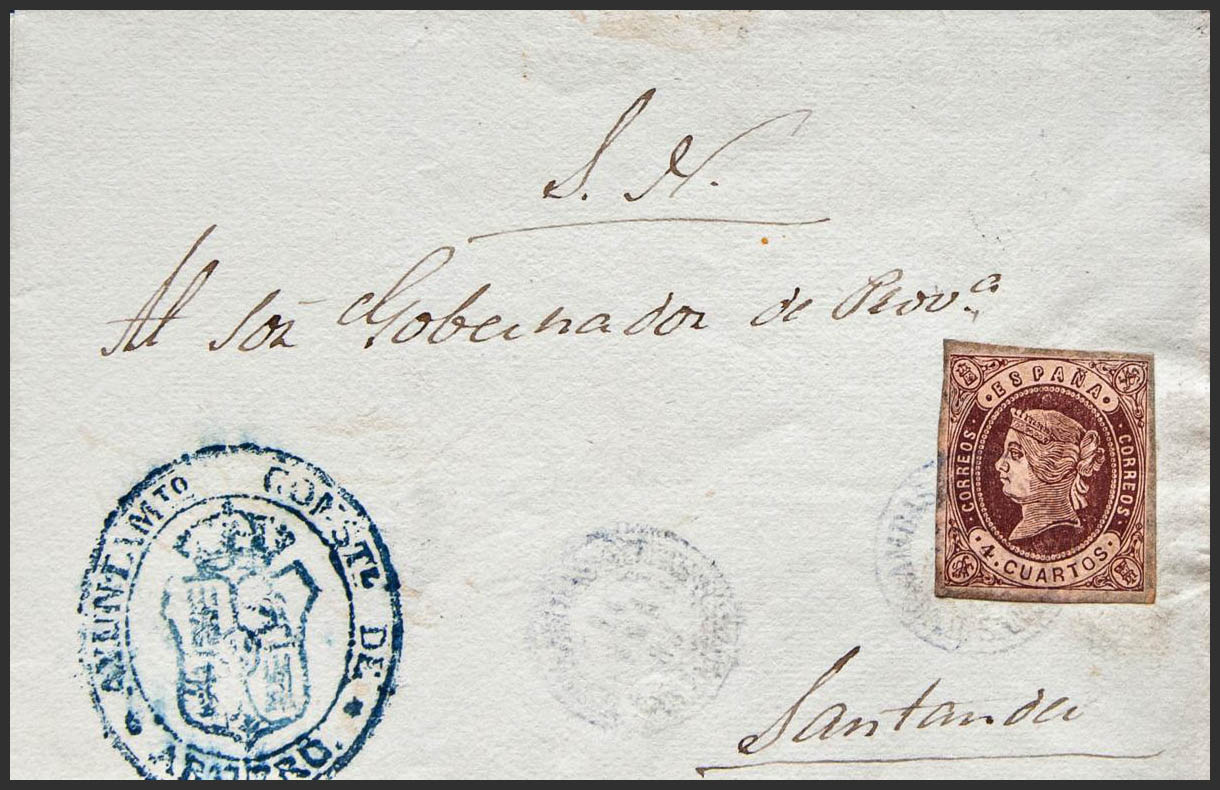 S. N.
Al Sor Gobernador de Prov.ª
ESPAÑA
CORREOS
CORREOS
4. CUARTOS
AYUNTAMTO CONSTL DE
Santander